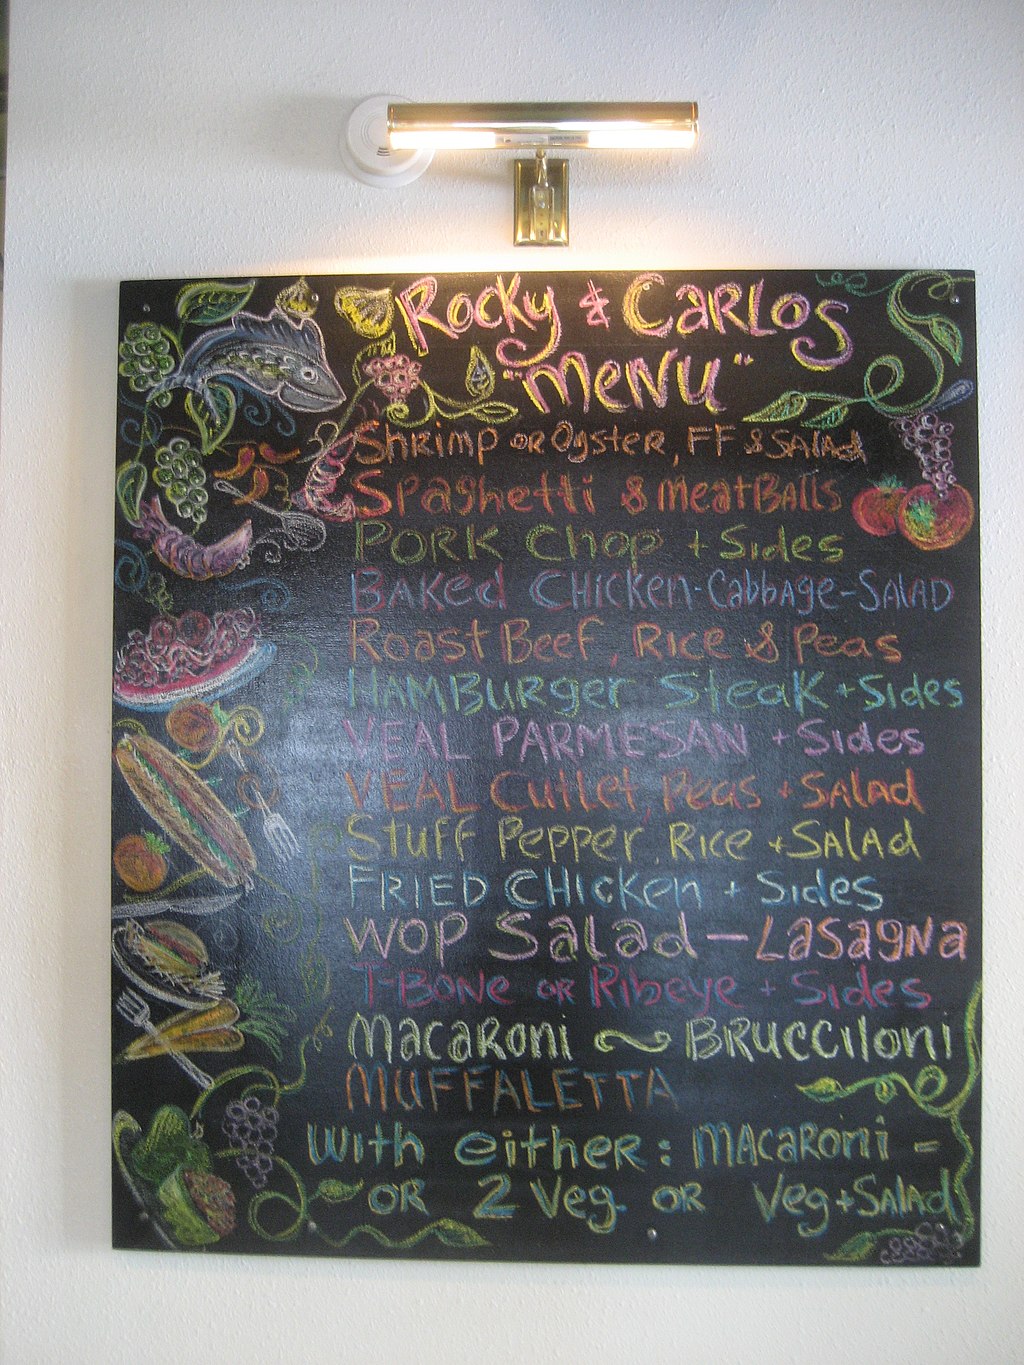 Rocky & Carlos
"Menu"
Shrimp or Oyster, FF & Salad
Spaghetti & Meatballs
Pork Chop + Sides
Baked Chicken-Cabbage-Salad
Roast Beef, Rice & Peas
Hamburger Steak + Sides
VEAL PARMESAN + Sides
VEAL Cutlet, Peas + Salad
Stuff Pepper, Rice + Salad
FRIED CHicken + Sides
WOP Salad - Lasagna
T-Bone or Ribeye + Sides
Macaroni ~ BRUCCiloni
MUFFALETTA
With either: Macaroni =
OR 2 Veg. OR Veg + Salad